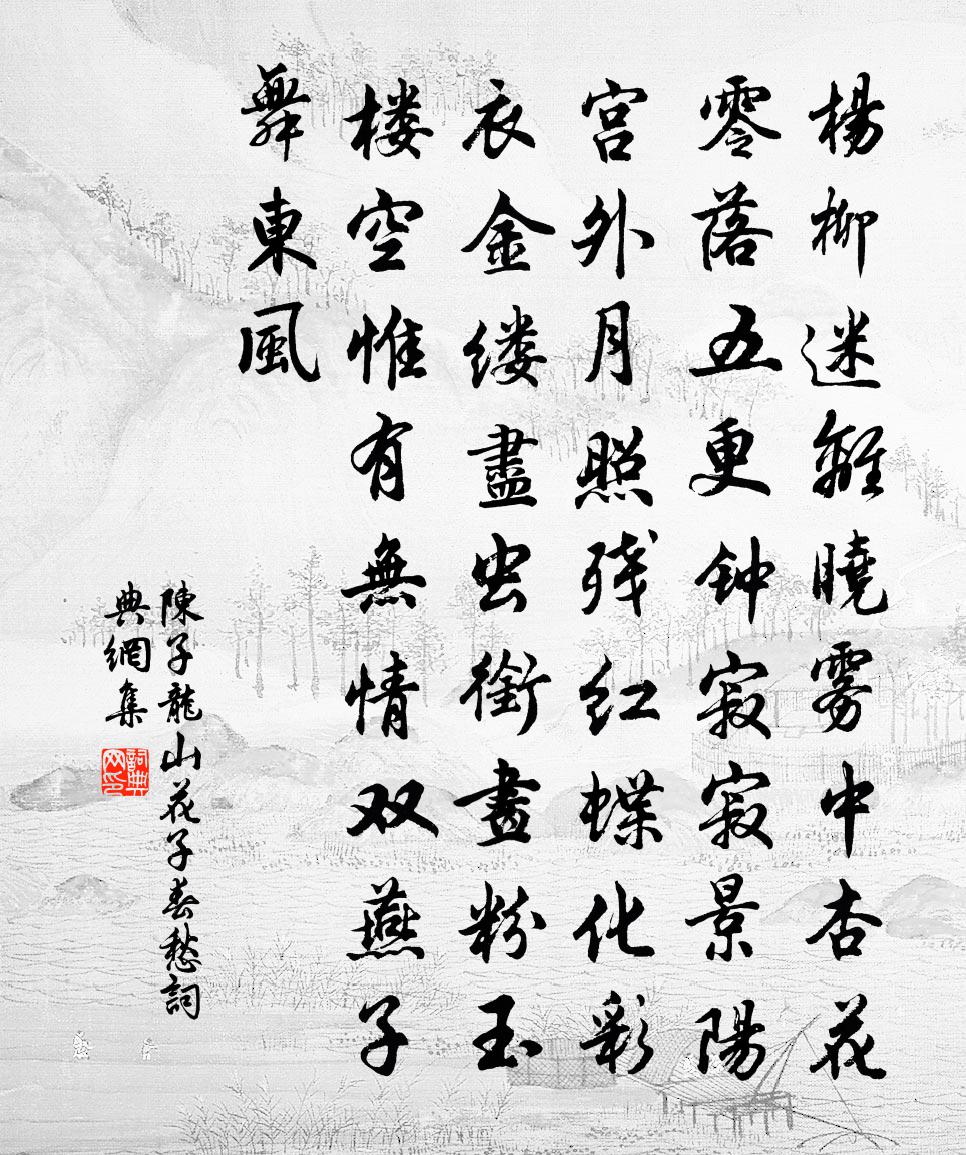 楊柳迷離曉雾中杏花
零落五更钟寂寂景陽
宫外月照残红蝶化彩
衣金缕盡虫銜畫粉玉
楼空惟有無情双燕子
舞東風
陳子龍山花子春愁詞
典網集
詞典网印